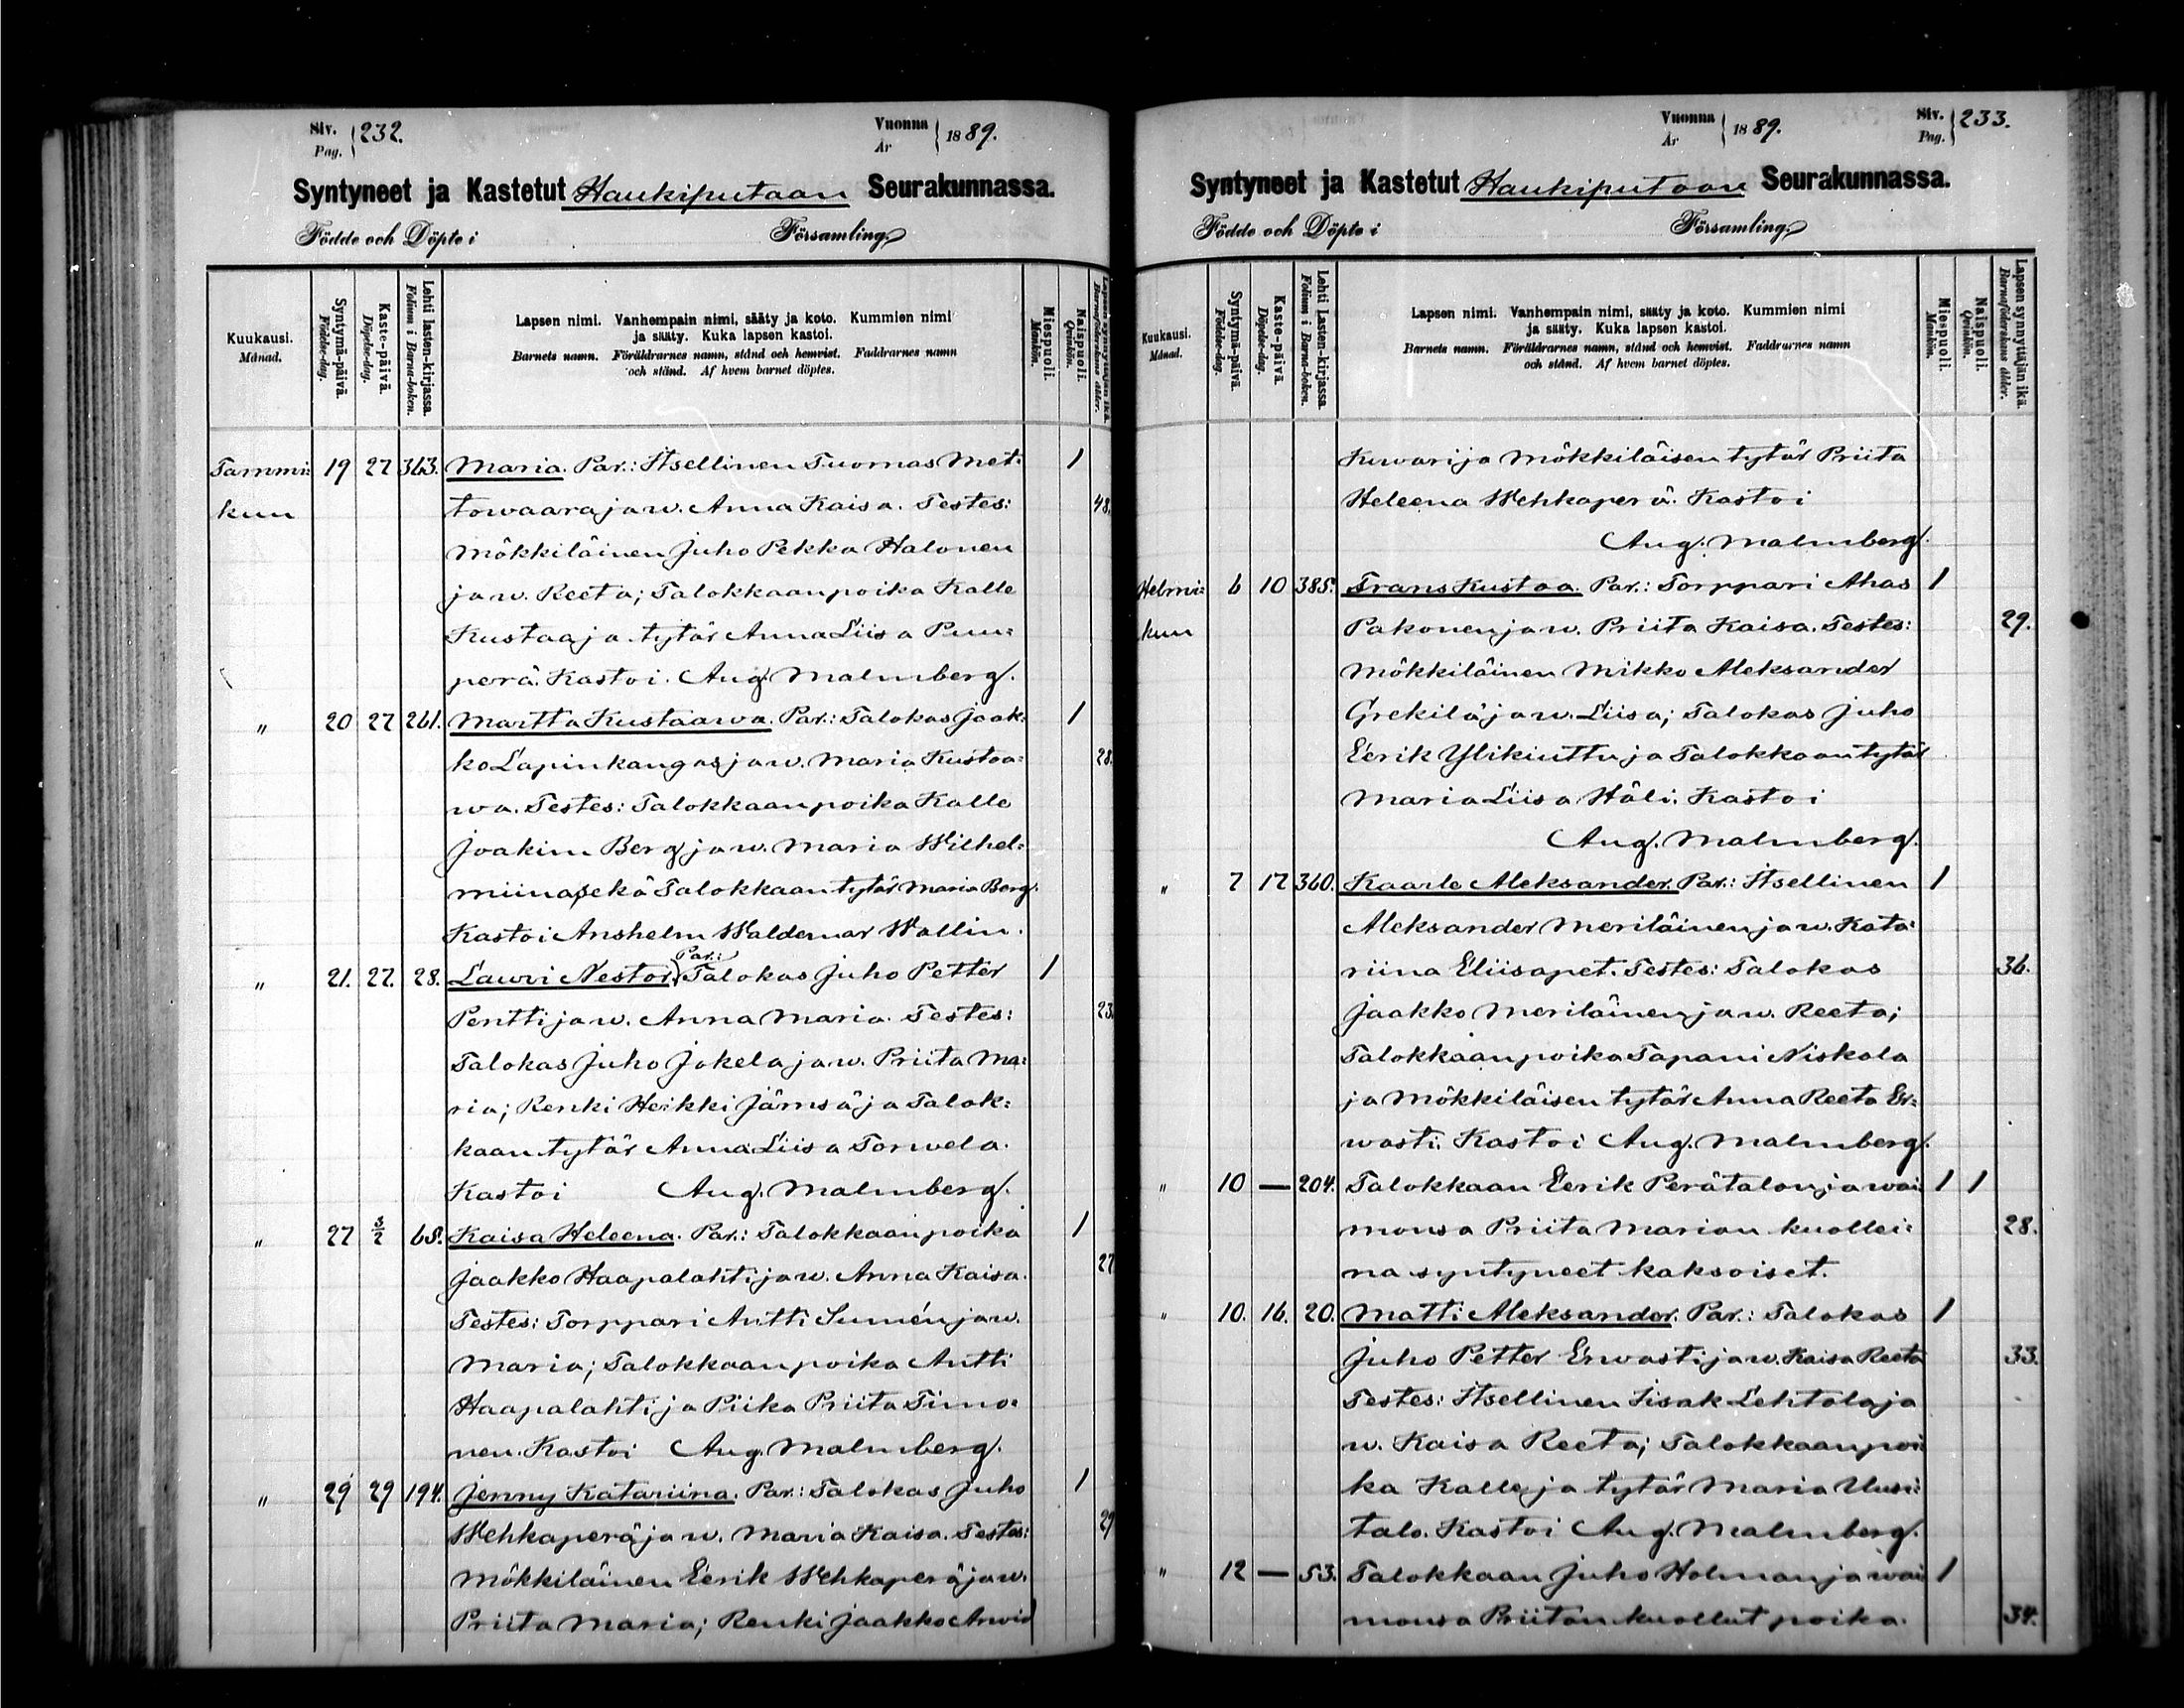 Siv. Pag. 232.
Vuonna År 1889.
Syntyneet ja Kastetut Haukiputaan Seurakunnassa.
Födde och Döpte i Församling
Kuukausi. Månad.
Syntymä-päivä. Födelse-dag.
Kaste-päivä. Döpelse-dag.
Lehti lasten-kirjassa. Folium i Barna-boken.
Lapsen nimi. Vanhempain nimi, sääty ja koto. Kummien nimi
ja sääty. Kuka lapsen kastoi.
Barnets namn. Föräldrarnes namn, stånd och hemvist. Faddrarnes namn
och stånd. Af hvem barnet döptes.
Miespuoli. Mankön.
Naispuoli. Qvinkön.
Lapsen synnyttäjän ikä. Barnaföderskans ålder.
Tammi: 19 27 363. Maria. Par.: Itsellinen Tuomas Met: 1
kuu towaara ja w. Anna Kaisa. Testes: 48.
Mökkiläinen Juho Pekka Halonen
ja w. Reeta; Talokkaanpoika Kalle
Kustaa ja tytär Anna Liisa Puu:
perä. Kastoi. Aug. Malmberg.
" 20 27 261. Martta Kustaawa. Par.: Talokas Jaak: 1
ko Lapinkangas ja w. Maria Kustaa: 28.
wa. Testes: Talokkaanpoika Kalle
Joakim Berg ja w. Maria Wilhel:
miina, sekä Talokkaan tytär Maria Berg.
Kastoi Anshelm Waldemar Wallin.
" 21. 27. 28. Lauri Nestor. Par.: Talokas Juho Petter 1
Pentti ja w. Anna Maria. Testes: 23.
Talokas Juho Jokela ja w. Priita Ma:
ria; Renki Heikki Jämsä ja Talok:
kaan tytär Anna Liisa Torwela.
Kastoi Aug. Malmberg.
" 27 3/2 68. Kaisa Heleena. Par.: Talokkaanpoika 1
Jaakko Haapalahti ja w. Anna Kaisa. 27
Testes: Torppari Antti Sumén ja w.
Maria; Talokkaanpoika Antti
Haapalahti ja Piika Priita Timo:
nen. Kastoi Aug. Malmberg.
" 29 29 194. Jenny Katariina. Par.: Talokas Juho 1
Wehkaperä ja w. Maria Kaisa. Testes: 29
Mökkiläinen Eerik Wehkaperä ja w.
Priita Maria; Renki Jaakko Arwid
Vuonna År 1889.
Siv. Pag. 233.
Syntyneet ja Kastetut Haukiputaan Seurakunnassa.
Födde och Döpte i Församling
Kuukausi. Månad.
Syntymä-päivä. Födelse-dag.
Kaste-päivä. Döpelse-dag.
Lehti Lasten-kirjassa. Folium i Barna-boken.
Lapsen nimi. Vanhempain nimi, sääty ja koto. Kummien nimi
ja sääty. Kuka lapsen kastoi.
Barnets namn. Föräldrarnes namn, stånd och hemvist. Faddrarnes namn
och stånd. Af hvem barnet döptes.
Miespuoli. Mankön.
Naispuoli. Qvinkön.
Lapsen synnyttäjän ikä. Barnaföderskans ålder.
Kuwari ja Mökkiläisen tytär Priita
Heleena Wehkaperä. Kastoi
Aug. Malmberg.
Helmi: 6 10 385. Frans Kustaa. Par.: Torppari Ahas 1
kuu Pakonen ja w. Priita Kaisa. Testes: 29.
Mökkiläinen Mikko Aleksander
Grekilä ja w. Liisa; Talokas Juho
Eerik Ylikiuttu ja Talokkaan tytär
Maria Liisa Häli. Kastoi
Aug. Malmberg.
" 7 17 360. Kaarle Aleksander. Par.: Itsellinen 1
Aleksander Meriläinen ja w. Kata:
riina Eliisapet. Testes: Talokas 36.
Jaakko Meriläinen ja w. Reeta;
Talokkaanpoika Tapani Niskala
ja Mökkiläisen tytär Anna Reeta Er:
wasti. Kastoi Aug. Malmberg.
" 10 — 204. Talokkaan Eerik Perätalon ja wai: 1 1
monsa Priita Marian kuollei: 28.
na syntyneet kaksoiset.
" 10. 16. 20. Matti Aleksander. Par.: Talokas 1
Juho Petter Erwasti ja w. Kaisa Reeta 33.
Testes: Itsellinen Iisak Lehtola ja
w. Kaisa Reeta; Talokkaanpoi:
ka Kalle ja tytär Maria Uusi:
talo. Kastoi Aug. Malmberg.
" 12 — 53. Talokkaan Juho Holman ja wai: 1
monsa Priitan kuollut poika. 34.